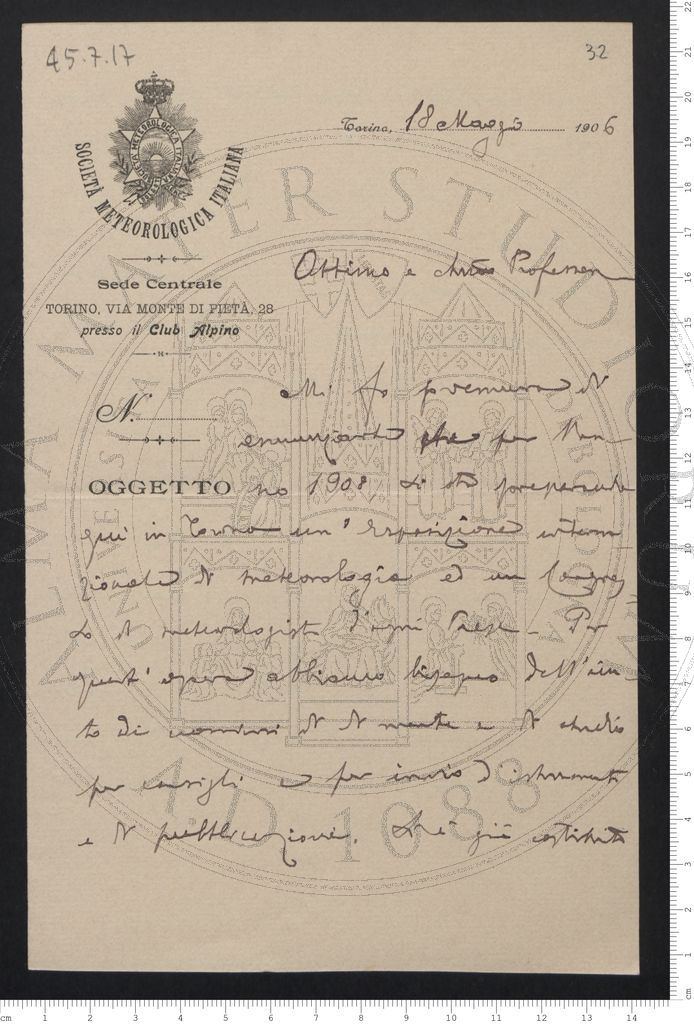 45.7.17
32
SOCIETÀ METEOROLOGICA ITALIANA
Torino, 18 Maggio 1906
Sede Centrale
TORINO, VIA MONTE DI PIETÀ, 28
presso il Club Alpino
N.
OGGETTO
Ottimo e Professore
Mi fo premura di
annunziarle che per l'an-
no 1908, si sta preparando
qui in Torino un'Esposizione interna
zionale di meteorologia ed un Congres
so di meteorologisti d'ogni Paese. Per
quest'opera abbiamo bisogno dell'aiu-
to di uomini di mente e di studio
per consigli e per invio d'istrumenti
e di pubblicazioni. Si è già costituito
ALMA MATER STUDIORUM
A.D. 1088